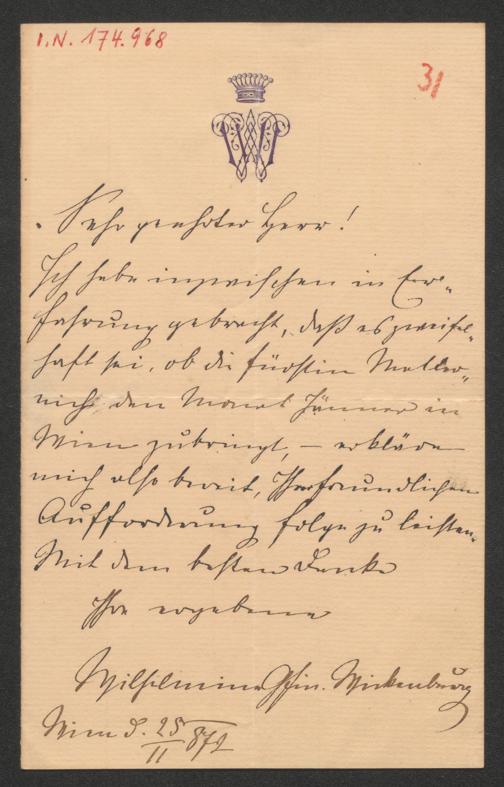 I.N. 174.968
31
Sehr geehrter Herr!
Ich habe inzwischen in Er-
fahrung gebracht, daß es zweifel-
haft sei, ob die Fürstin Metter-
nich den Monat Jänner in
Wien zubringt, – erkläre
mich also bereit, Ihrer freundlichen
Aufforderung folge zu leisten.
Mit dem besten Danke
Ihre ergebene
Wilhelmine Gfin. Wickenburg
Wien d. 25/II 872